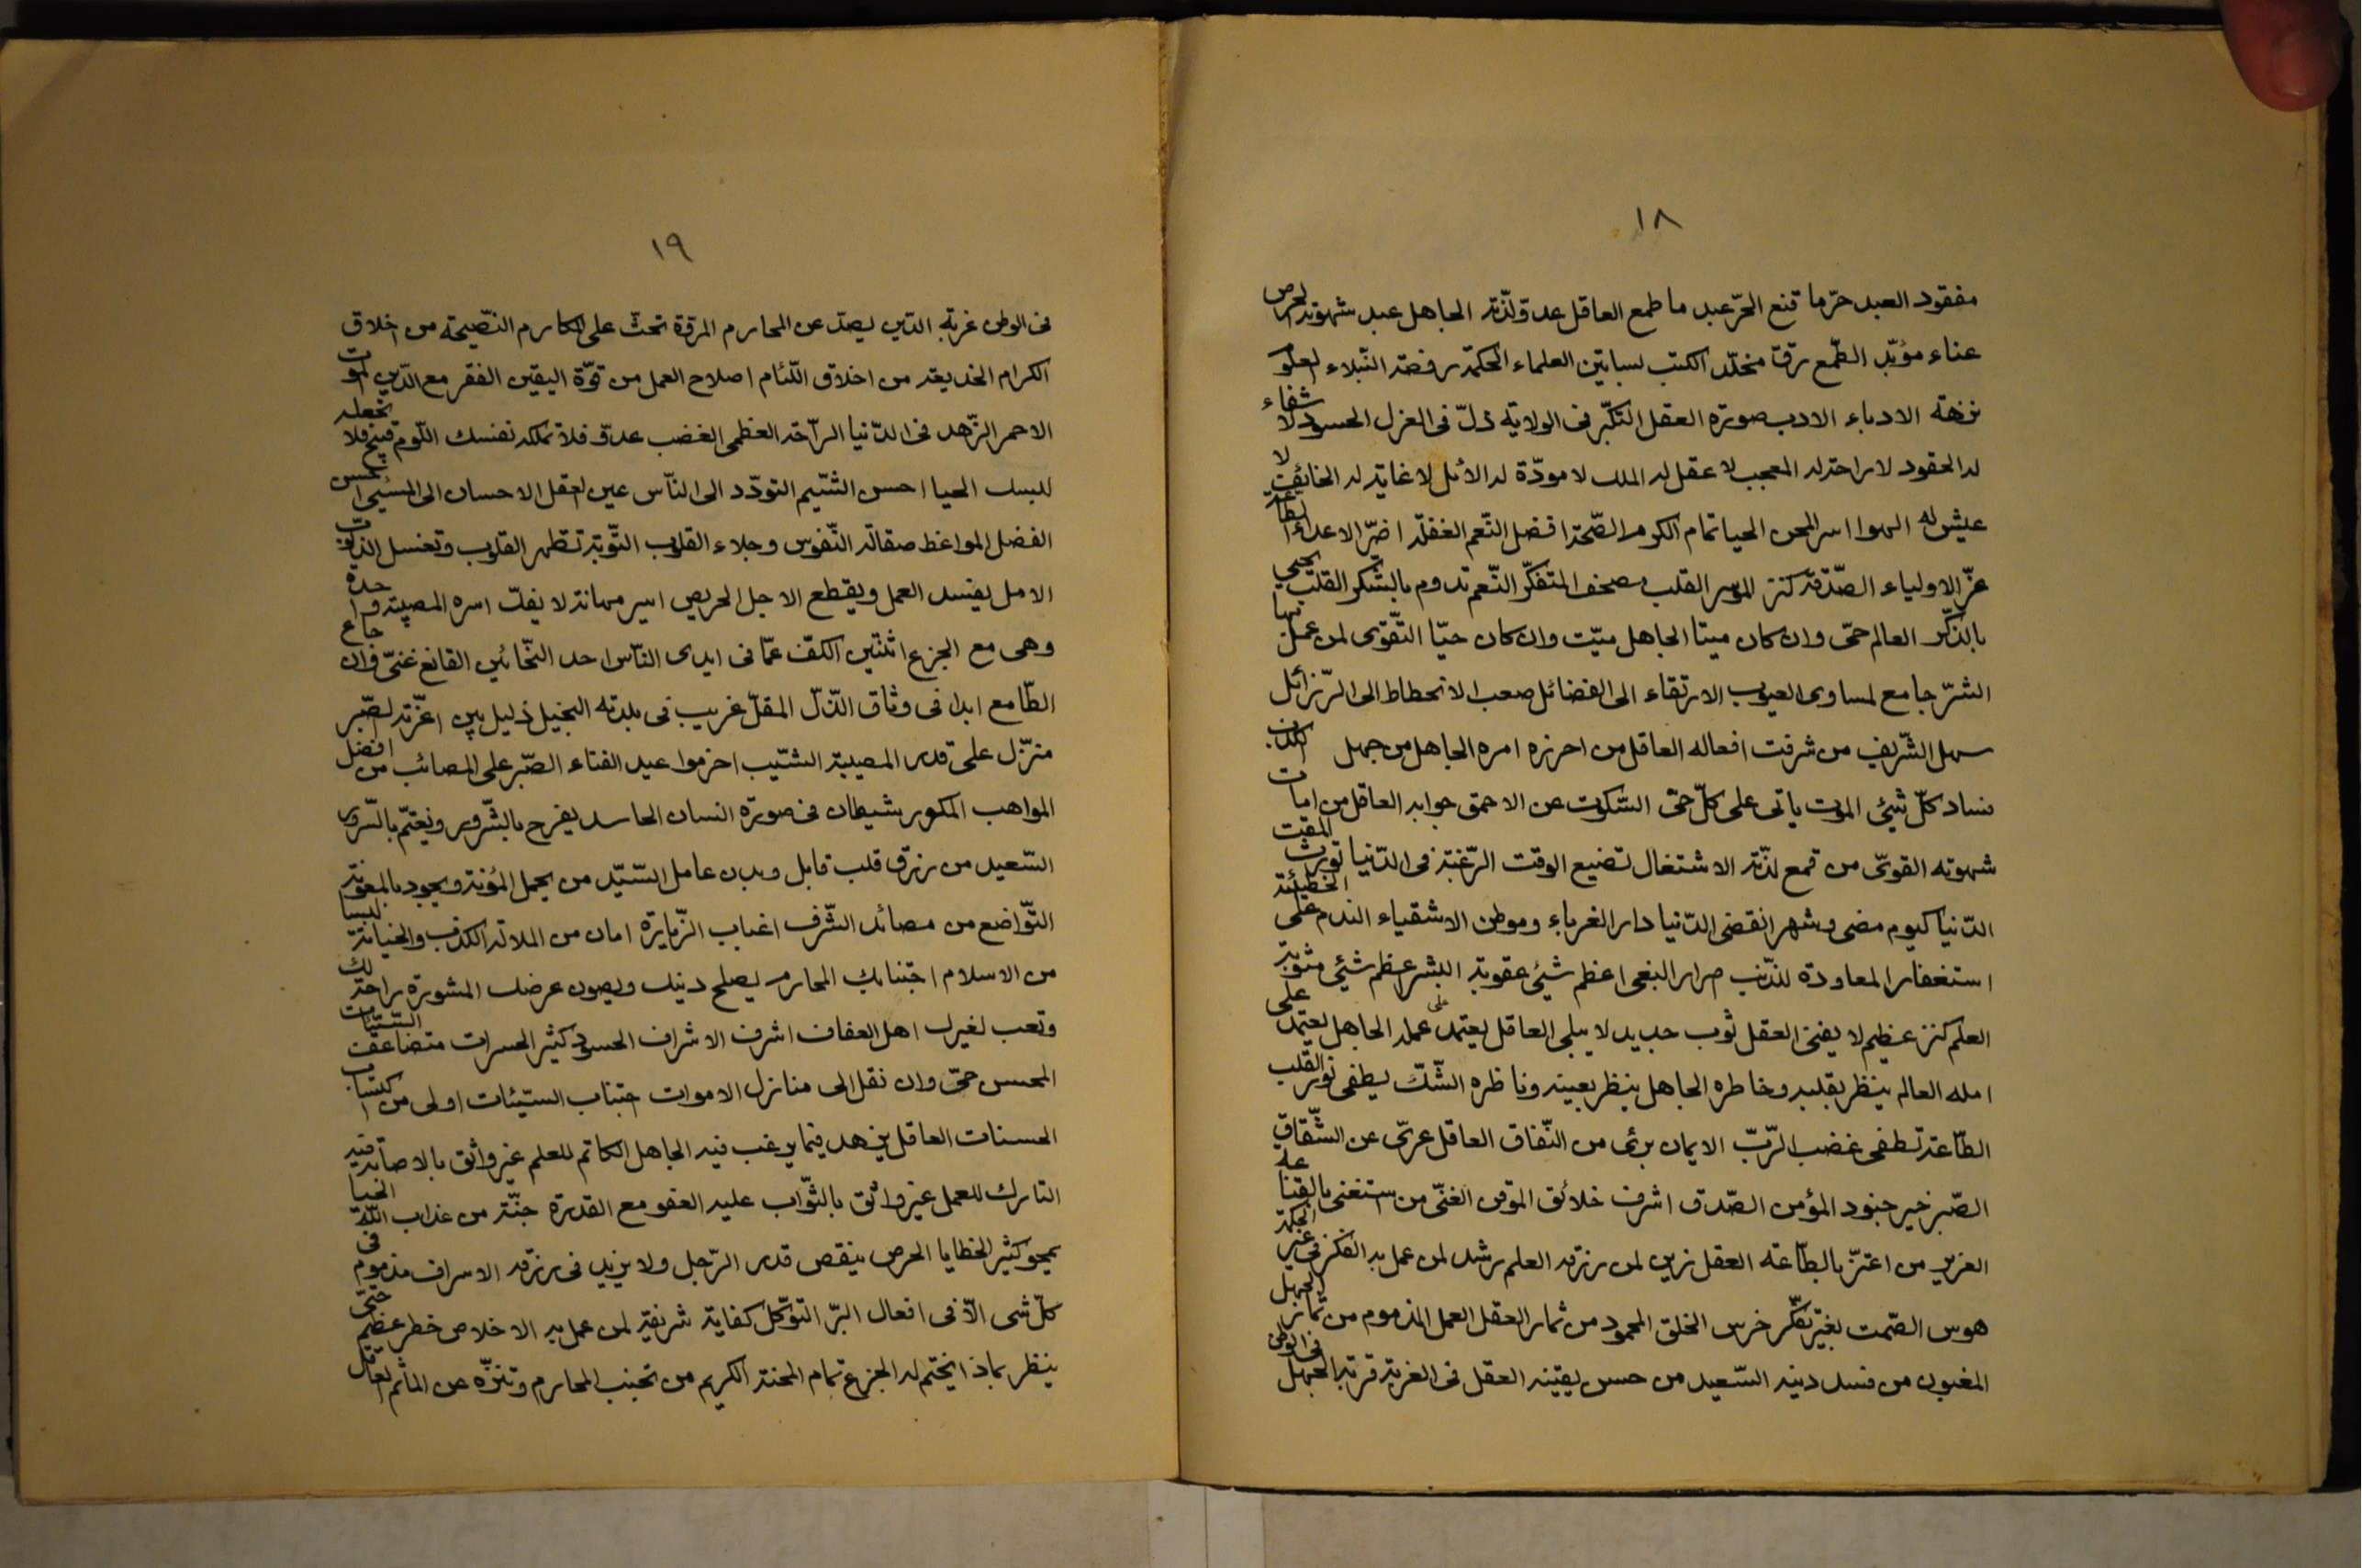 ١٨
مفقود العبد حرّ ما قنع الحرّ عبد ما طمع العاقل عدوّ لذّته الجاهل عبد شهوته الحرص
عناء مؤبّد الطّمع رقّ مخلّد الكتب بساتين العلماء الحكمة روضة النّبلاء العلوم
نزهة الادباء الادب صورة العقل التكبّر فى الولاية ذلّ فى العزل الحسود لا شفاء
له الحقود لا راحة له المعجب لا عقل له الملك لا مودّة له الأمل لا غاية له الخائف لا
عيش له الهوا اسر المحن الحيا تمام الكرم الصّحة افضل النّعم الغفلة اضرّ الاعداء الطاعة
عزّ الاولياء الصّدقة كنز الموسر القلب مصحف المتفكّر النّعم تدوم بالشّكر القلب يحيى
بالذّكر العالم حىّ وان كان ميتا الجاهل ميّت وان كان حيّا التّقوى لمن عمل بها
الشرّ جامع لمساوى العيوب الارتقاء الى الفضائل صعب الانحطاط الى الرّزائل
سهل الشّريف من شرفت افعاله العاقل من احرزه امره الجاهل من جهل الكذب
فساد كلّ شيئ الموت ياتى على كلّ حىّ السّكوت عن الاحمق جوابه العاقل من امات
شهوته القوىّ من قمع لذّته الاشتغال تضيع الوقت الرّغبة فى الدّنيا تورث المقت
الدّنيا كيوم مضى وشهر انقضى الدّنيا دار الغرباء وموطن الاشقياء الندم على الخطيئة
استغفار المعاودة للذّنب صرار البغى اعظم شيئ عقوبة البشر عظم شيئ مثوبة
العلم كنز عظيم لا يفنى العقل ثوب جديد لا يبلى العاقل يعتمد على عمله الجاهل يعتمد على
امله العالم ينظر بقلبه وخاطره الجاهل ينظر بعينه وناظره الشّكّ يطفى نور القلب
الطّاعة تطفى غضب الرّبّ الايمان برئى من النّفاق العاقل عرىّ عن الشّقاق
الصّبر خير جنود المؤمن الصّدق اشرف خلائق الموقن الغنىّ من استغنى بالقناعه
العزيز من اعتزّ بالطّاعة العقل زين لمن رزقه العلم رشد لمن عمل به الفكر فى غير الحكمة
هوس الصّمت بغير تفكّر خرس الخلق المحمود من ثمار العقل العمل المذموم من ثمار الجهل
المغبون من فسد دينه السّعيد من حسن يقينه العقل فى الغربة قربة الجهل فى الوطن
١٩
فى الوطن غربة الدّين يصدّ عن المحارم المروّة تحثّ على المكارم النّصيحة من اخلاق
الكرام الخديعة من اخلاق اللّئام اصلاح العمل من قوّة اليقين الفقر مع الدّين الموت
الاحمر الزّهد فى الدّنيا الرّاحة العظمى الغضب عدوّ فلا تملكه نفسك اللّوم قبيح فلا تجعله
لبسك الحيا احسن الشّيم التودّد الى النّاس عين العقل الاحسان الى المسيئ احسن
الفضل المواعظ صقالة النّفوس وجلاء القلوب التّوبة تطهر القلوب وتغسل الذنوب
الامل يفسد العمل ويقطع الاجل الحريص اسير مهانة لا يفكّ اسره المصيبة واحدة
وهى مع الجزع اثنتين الكفّ عمّا فى ايدى النّاس احد السّخائين القانع غنىّ وان جاع
الطّامع ابدا فى وثاق الذلّ المقلّ غريب فى بلدته البخيل ذليل بين اعزّته الصّبر
منزّل على قدر المصيبة الشّيب اخر مواعيد الفناء الصّبر على المصائب من افضل
المواهب المكور شيطان فى صورة انسان الحاسد يفرح بالشّرور ويغتمّ بالسّرور
السّعيد من رزق قلب قابل وبدن عامل السّيّد من يحمل المؤنة ويجود بالمعونة
التّواضع من مصائد الشّرف اغباب الزّيارة امان من الملالة الكذب والخيانة ليسا
من الاسلام اجتنابك المحارم يصلح دينك ويصون عرضك المشورة راحة لك
وتعب لغيرك اهل العفاف اشرف الاشراف الحسود كثير الحسرات متضاعف السّيّئات
المحسن حىّ وان نقل الى منازل الاموات اجتناب السّيّئات اولى من اكتساب
الحسنات العاقل يزهد فيما يرغب فيه الجاهل الكاتم للعلم غير واثق بالاصابة فيه
التارك للعمل غير واثق بالثّواب عليه العفو مع القدرة جنّة من عذاب اللّه
يمحو كثير الخطايا الحرص ينقص قدر الرّجل ولا يزيد فى رزقه الاسراف مذموم فى
كلّ شى الّا فى افعال البرّ التوكّل كفاية شريفة لمن عمل به الاخلاص خطر عظيم حتّى
ينظر بماذا يختم له الجزع تمام المحنة الكريم من تجنب المحارم وتنزّه عن المأثم العاقل